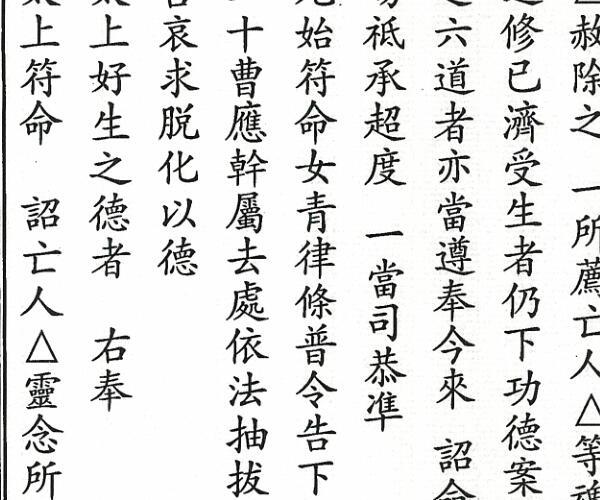 赦除之 一所薦亡人△等
修已濟受生者仍下功德案
六道者亦當遵奉今來 詔命
祗承超度 一當司恭準
始符命女青律條普令告下
十曹應幹屬去處依法抽拔
哀求脱化以德
上好生之德者 右奉
太上符命 詔亡人△靈念所